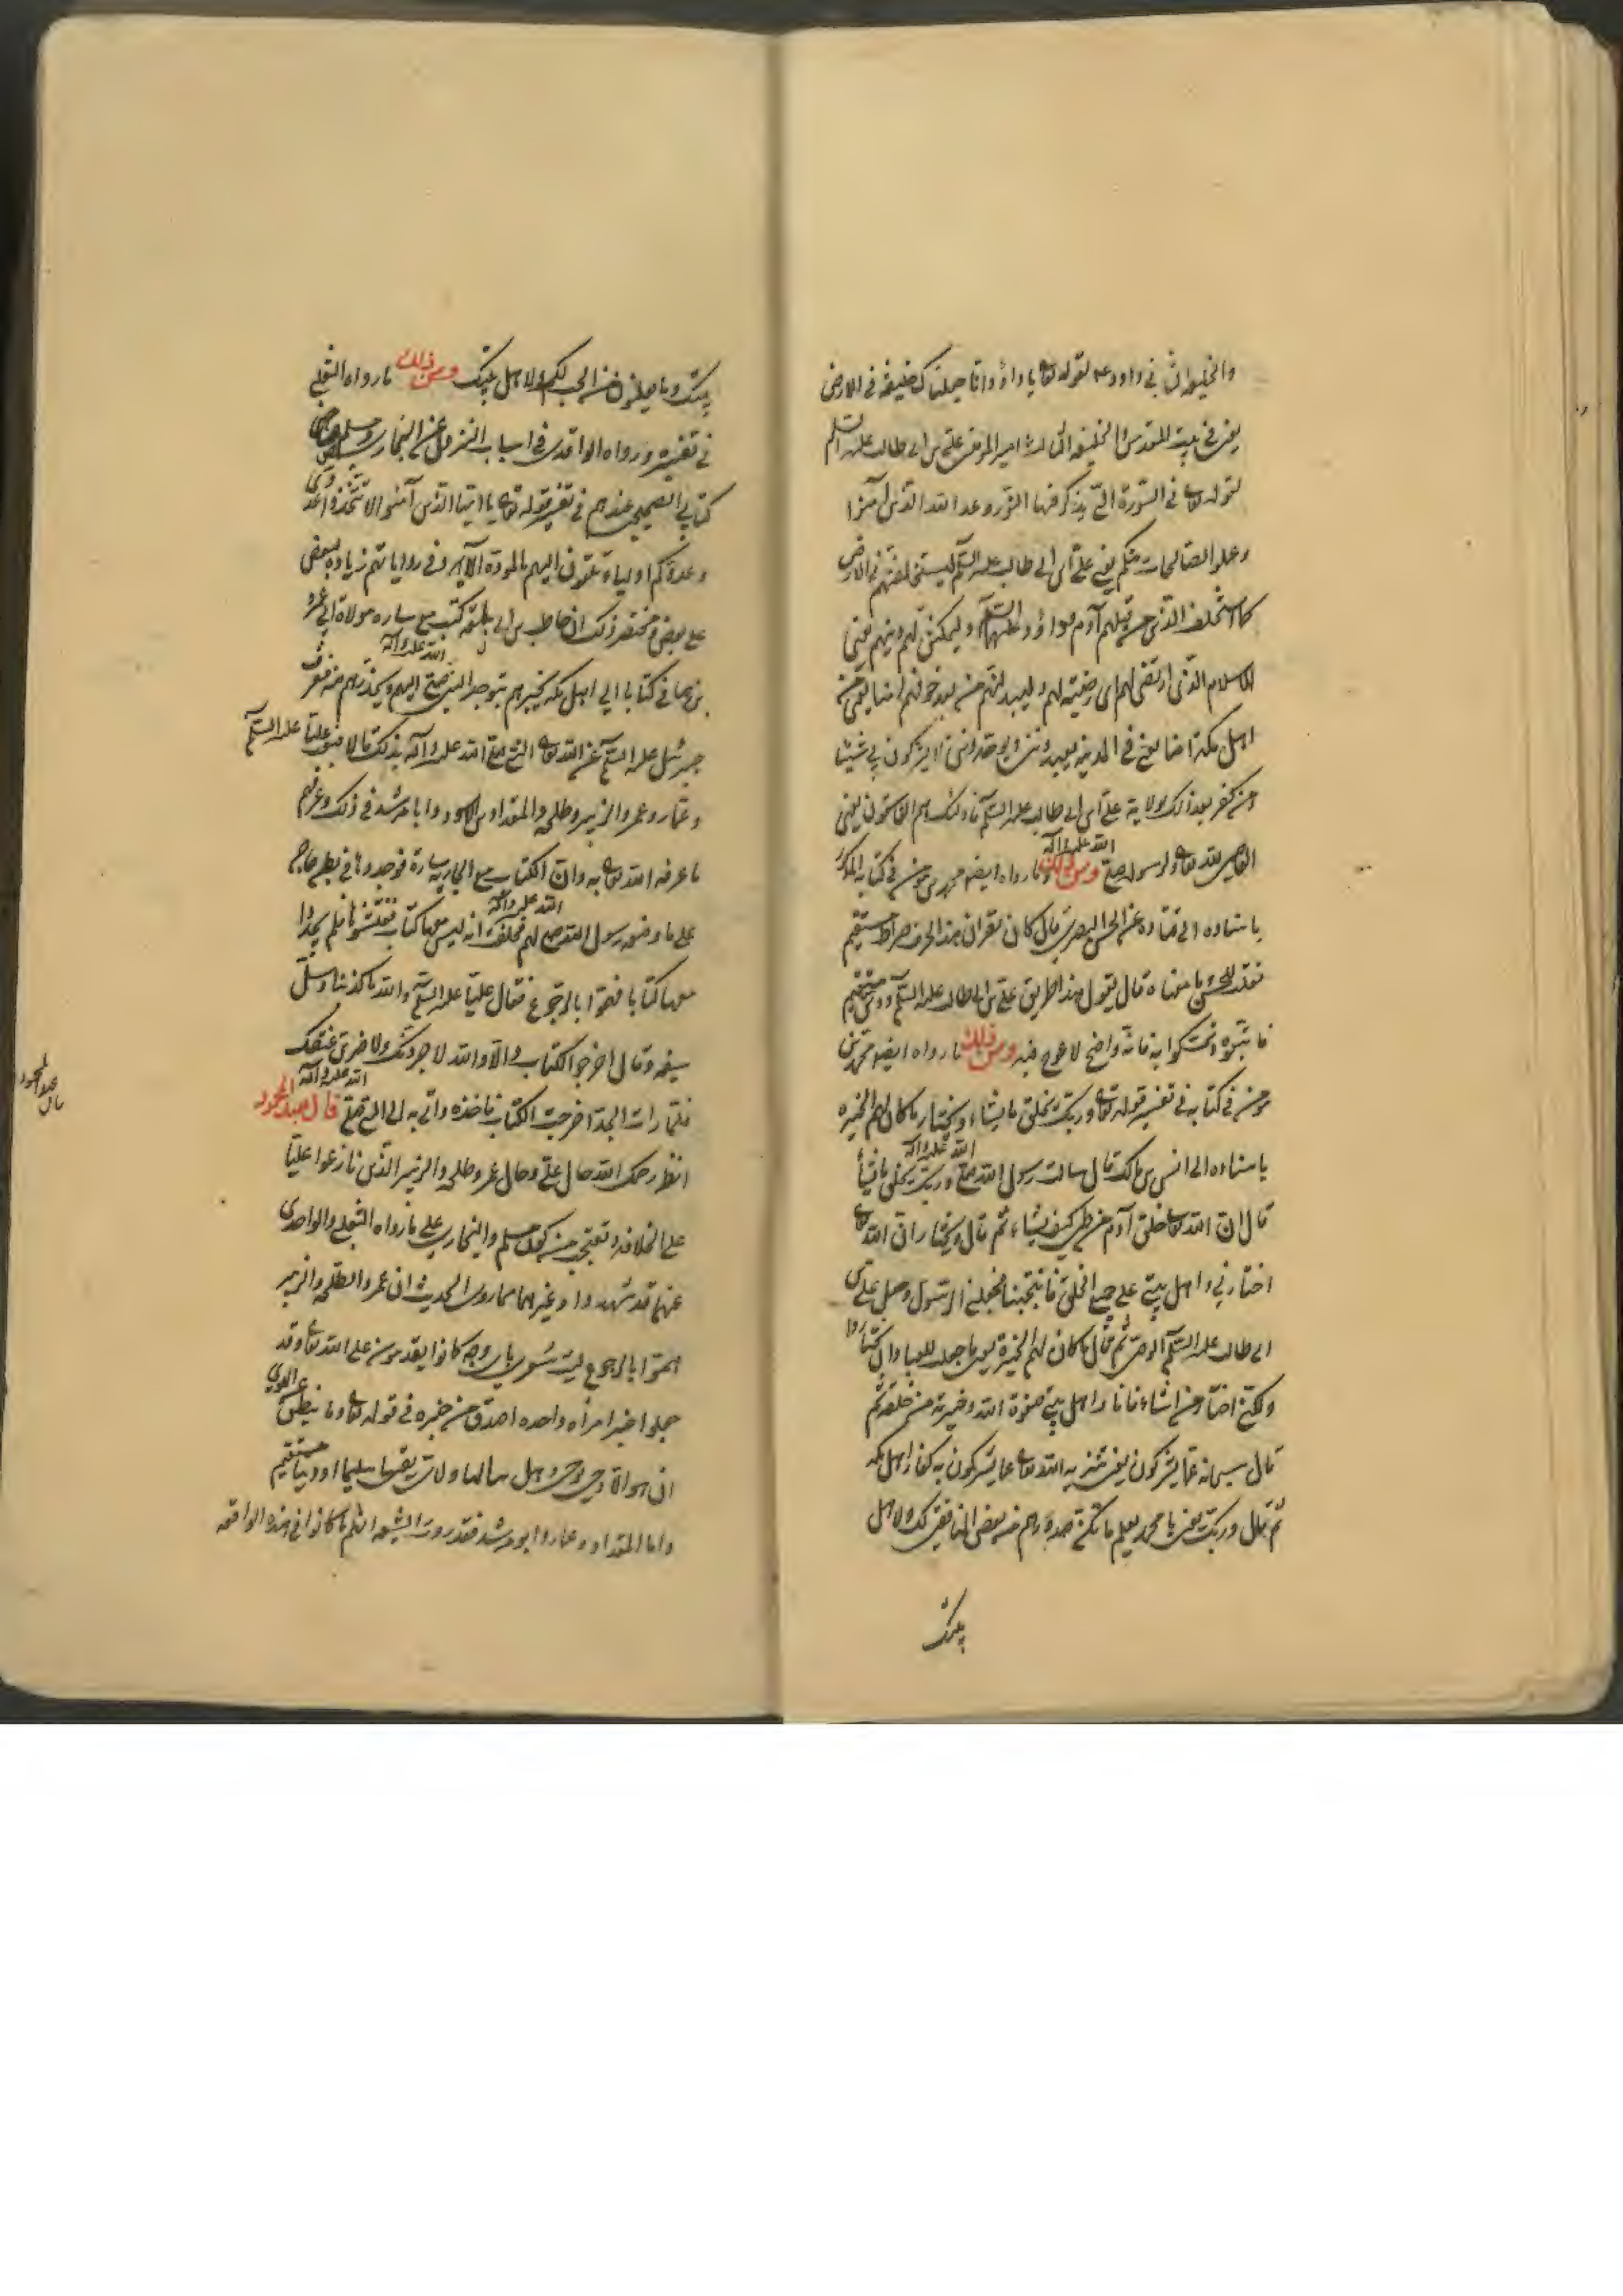 والخليفة الثاني داود ع لقوله تعا يا داؤد انا جعلناك خليفة في الارض
يعني في بيت المقدس والخليفة الثالث امير المؤمنين علي بن ابي طالب عليه السلم
لقوله تعا في السورة التي يذكر فيها النور وعد الله الذين آمنوا
وعملوا الصالحات منكم يعني علي بن ابي طالب عليه السلم ليستخلفنهم في الارض
كما استخلف الذين من قبلهم آدم وداؤد عليهما السلم وليمكنن لهم دينهم يعني
الاسلام الذي ارتضى لهم اي رضيته لهم وليبدلنهم من بعد خوفهم امنا يعني من
اهل مكة امنا يعني في المدينة يعبدونني ويوحدونني لا يشركون بي شيئا
ومن كفر بعد ذلك بولاية علي بن ابي طالب عليه السلم فاولئك هم الفاسقون يعني
العاصين لله تعا ولرسوله صلى الله عليه وآله ومن ذلك ما رواه ايضا محمد بن مؤمن في كتابه المذكور
باسناده الى قتادة عن الحسن البصري قال كان يقرا هذا الحرف صراط مستقيم
فقلت للحسن ما معناه قال يقول هذا طريق علي بن ابي طالب عليه السلم ودين مستقيم
فاتبعوه وتمسكوا به فانه واضح لا عوج فيه ومن ذلك ما رواه ايضا محمد بن
مؤمن في كتابه في تفسير قوله تعا وربك يخلق ما يشاء ويختار ما كان لهم الخيره
باسناده الى انس بن مالك قال سالت رسول الله صلى الله عليه وآله وربك يخلق ما يشأ
قال ان الله تعا خلق آدم من طين كيف يشاء ثم قال ويختار ان الله تعا
اختارني واهل بيتي على جميع الخلق فانتجبنا فجعلني الرسول وجعل علي بن
ابي طالب عليه السلم الوصي ثم قال ما كان لهم الخيرة يعني ما جعلت للعباد ان يختاروا
ولكني اختار من اشاء فانا واهل بيتي صفوة الله وخيرته من خلقه ثم
قال سبحانه عما يشركون يعني تنزيه الله تعا عما يشركون به كفار اهل مكه
ثم قال وربك يعني يا محمد يعلم ما تكن صدورهم من بغض المنافقين لك ولاهل
بيتك
بيتك وما يعلنون من الحب لك ولاهل بيتك ومن ذلك ما رواه الثعلبي
في تفسيره ورواه الواقدي في اسباب النزول عن البخاري ومسلم في
كتابي الصحيحين عندهم في تفسير قوله تعا يا ايها الذين آمنوا لا تتخذوا عدوي
وعدوكم اولياء تلقون اليهم بالمودة الآية وفي رواياتهم زيادة بعض
على بعض ومختصر ذلك ان حاطب بن ابي بلتعة كتب مع ساره مولاة ابي عمرو
بن هاني كتابا الى اهل مكة يخبرهم بتوجه النبي صلى الله عليه وآله اليهم ويحذرهم منه فعرف
جبرئيل عليه السلم عن الله تعا النبي صلى الله عليه وآله بذلك قالا فبعث عليا عليه السلم
وعمار وعمر والزبير وطلحه والمقداد بن الاسود وابا مرشد في ذلك وعرفهم
ما عرفه الله تعا به وان الكتاب مع الجارية سارة فوجدوها في بطن خاخ
على ما وصف رسول الله صلى الله عليه وآله لهم فحلفت انه ليس معها كتاب ففتشوها فلم يجدوا
معها كتابا فهموا بالرجوع فقال عليا عليه السلم والله ما كذبنا وسل
سيفه وقال اخرجوا الكتاب والا والله لاجردنك ولاضربن عنقك
فلما رات الجد اخرجت الكتاب فاخذه واتى به الى النبي صلى الله عليه وآله قال عبد المحمود
انظر رحمك الله حال علي وحال عمر وطلحه والزبير الذين نازعوا عليا
على الخلافة وتعجب من كون مسلم والبخاري على ما رواه الثعلبي والواحدي
عنهما قد شهدوا وغيرهما ممن روى الحديث ان عمر والطلحه والزبير
هموا بالرجوع ليت شعري باي وجه كانوا يقدمون على الله تعا وقد
جعلوا خبر امرأه واحده اصدق من خبره في قوله تعا وما ينطق عن الهوى
ان هو الا وحي يوحى وهل
واما المقداد وعمار وابو مرشد فقد روت الشيعة انهم ما كانوا في هذه الواقعه
قال
عبد المحمود